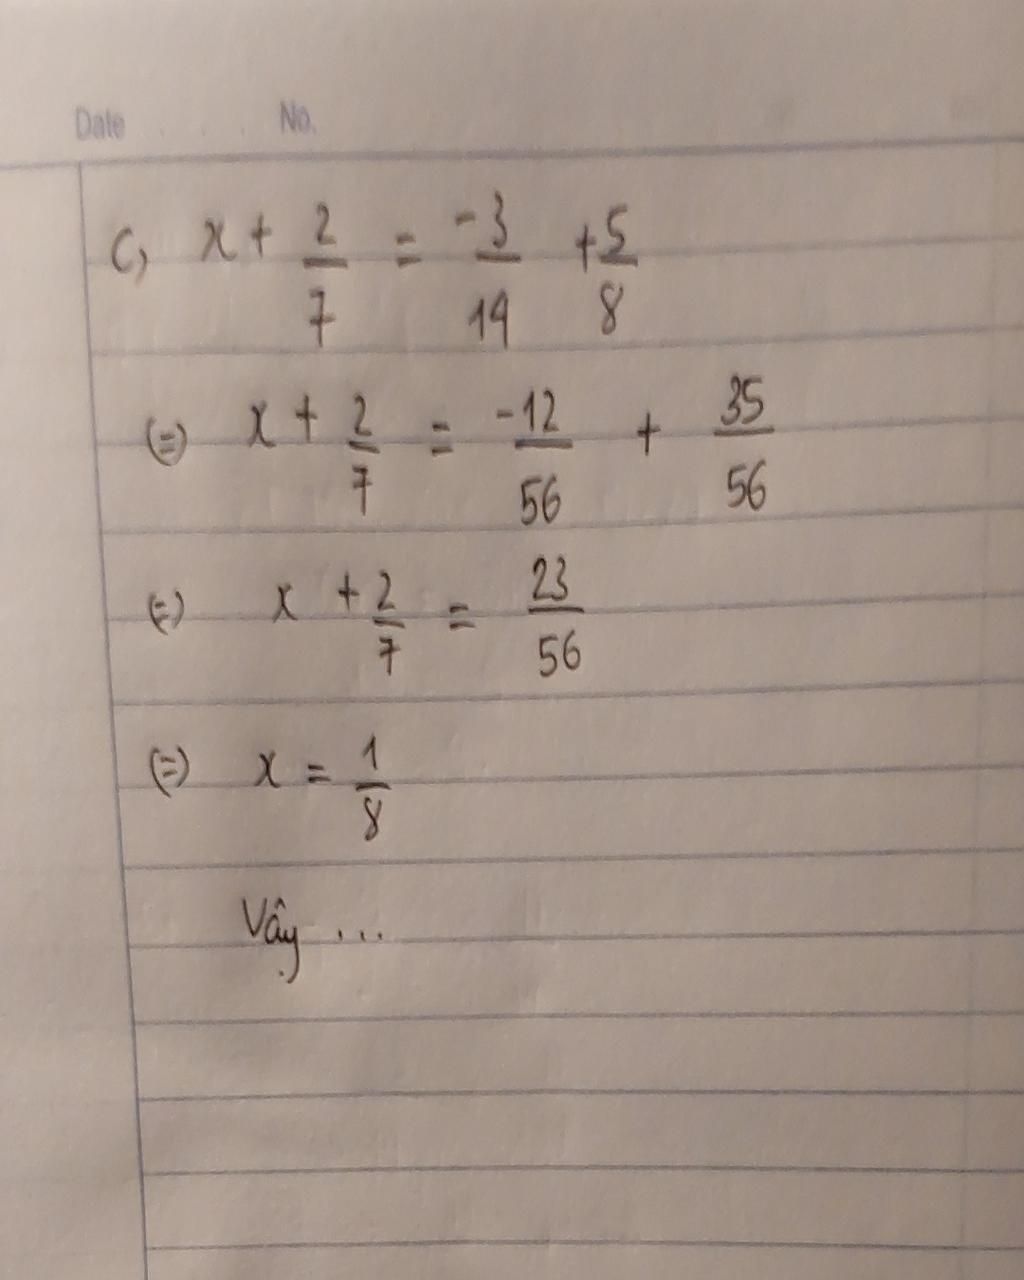 Date No.
c, x + 2/7 = -3/14 + 5/8
(=) x + 2/7 = -12/56 + 35/56
(=) x + 2/7 = 23/56
(=) x = 1/8
Vậy ...